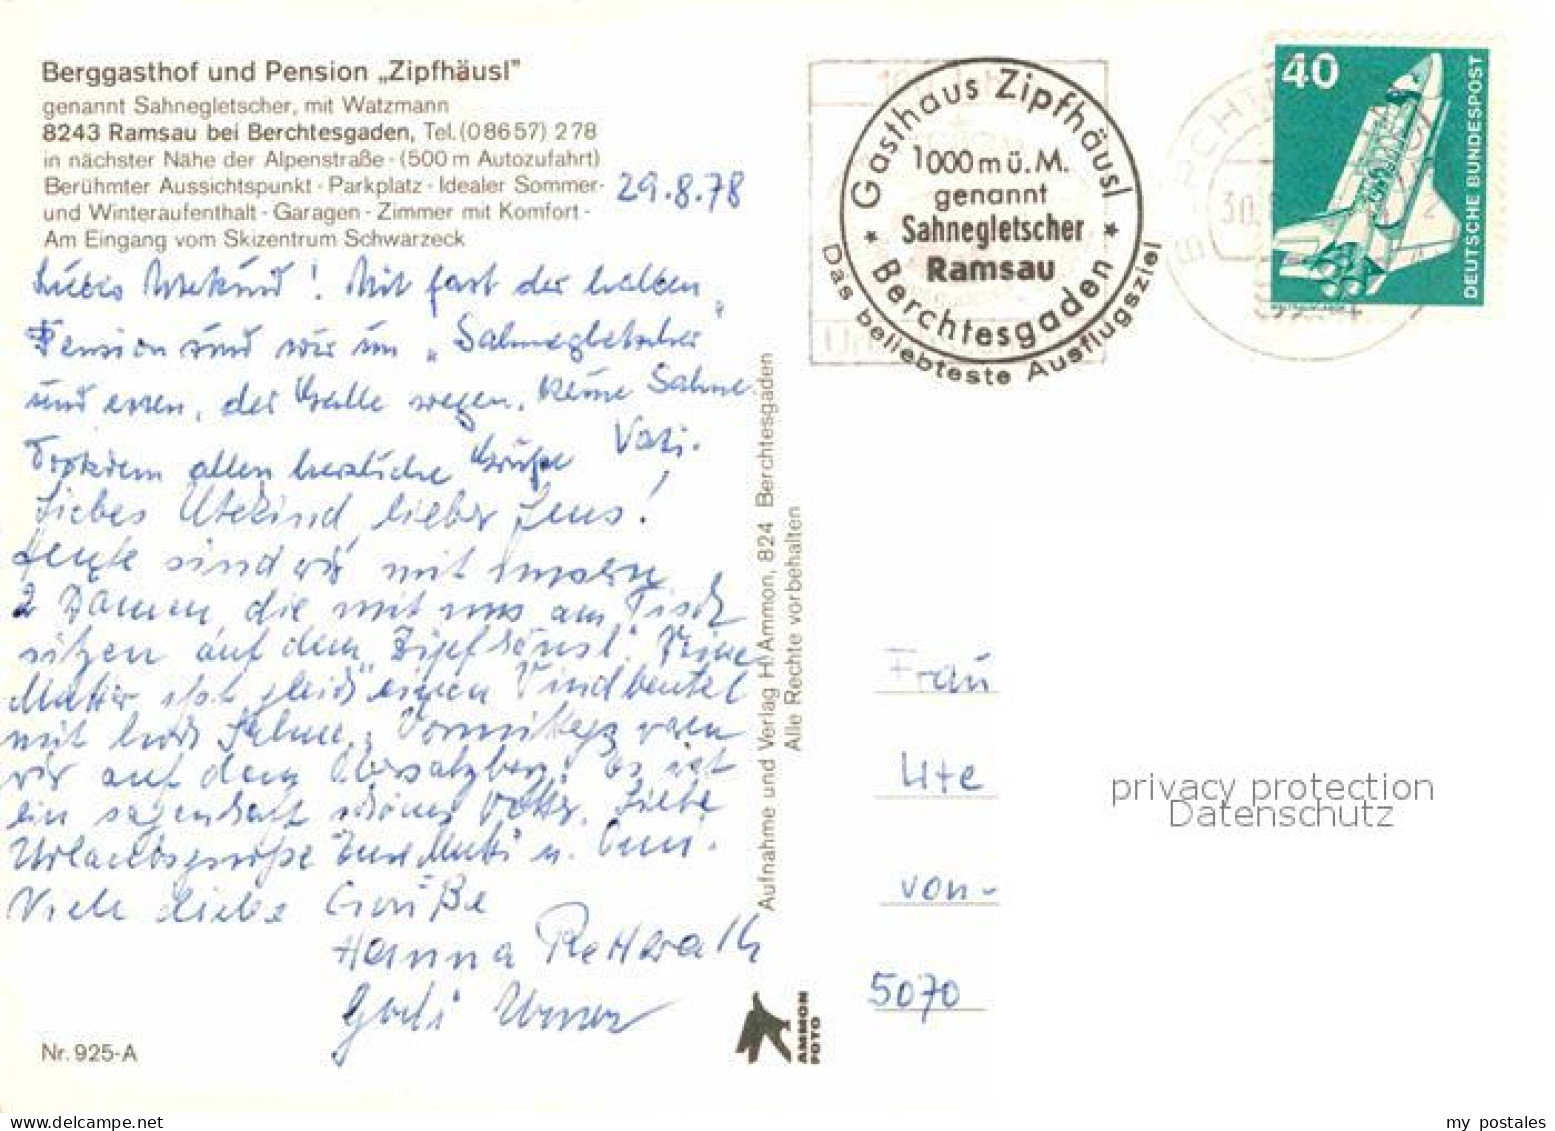 Berggasthof und Pension „Zipfhäusl"
genannt Sahnegletscher, mit Watzmann
8243 Ramsau bei Berchtesgaden, Tel. (08657) 278
in nächster Nähe der Alpenstraße - (500 m Autozufahrt)
Berühmter Aussichtspunkt - Parkplatz - Idealer Sommer-
und Winteraufenthalt - Garagen - Zimmer mit Komfort -
Am Eingang vom Skizentrum Schwarzeck
29.8.78
Liebes Utekind! Mit fast der halben
Pension sind wir im „Sahnegletscher"
und essen, der Galle wegen, keine Sahne.
Trotzdem allen herzliche Grüße Vati.
Liebes Utekind, lieber Jens!
Heute sind wir mit unsern
2 Damen, die mit uns am Tisch
sitzen auf dem „Zipfhäusl". Deine
Mutter ißt gleich einen Windbeutel
mit viel Sahne. Vormittags waren
wir auf dem Obersalzberg. Es ist
ein sagenhaft schönes Wetter. Liebe
Urlaubsgrüße Eure Mutti u. Omi.
Viele liebe Grüße
Hanna Retterath
Nr. 925-A
Aufnahme und Verlag H. Ammon, 824 Berchtesgaden
Alle Rechte vorbehalten
AMMON
FOTO
Gasthaus Zipfhäusl
1000 m ü. M.
genannt
Sahnegletscher
Ramsau
* Berchtesgaden *
Das beliebteste Ausflugsziel
40
DEUTSCHE BUNDESPOST
30.
Frau
Ute
von-
5070
privacy protection
Datenschutz
my postales